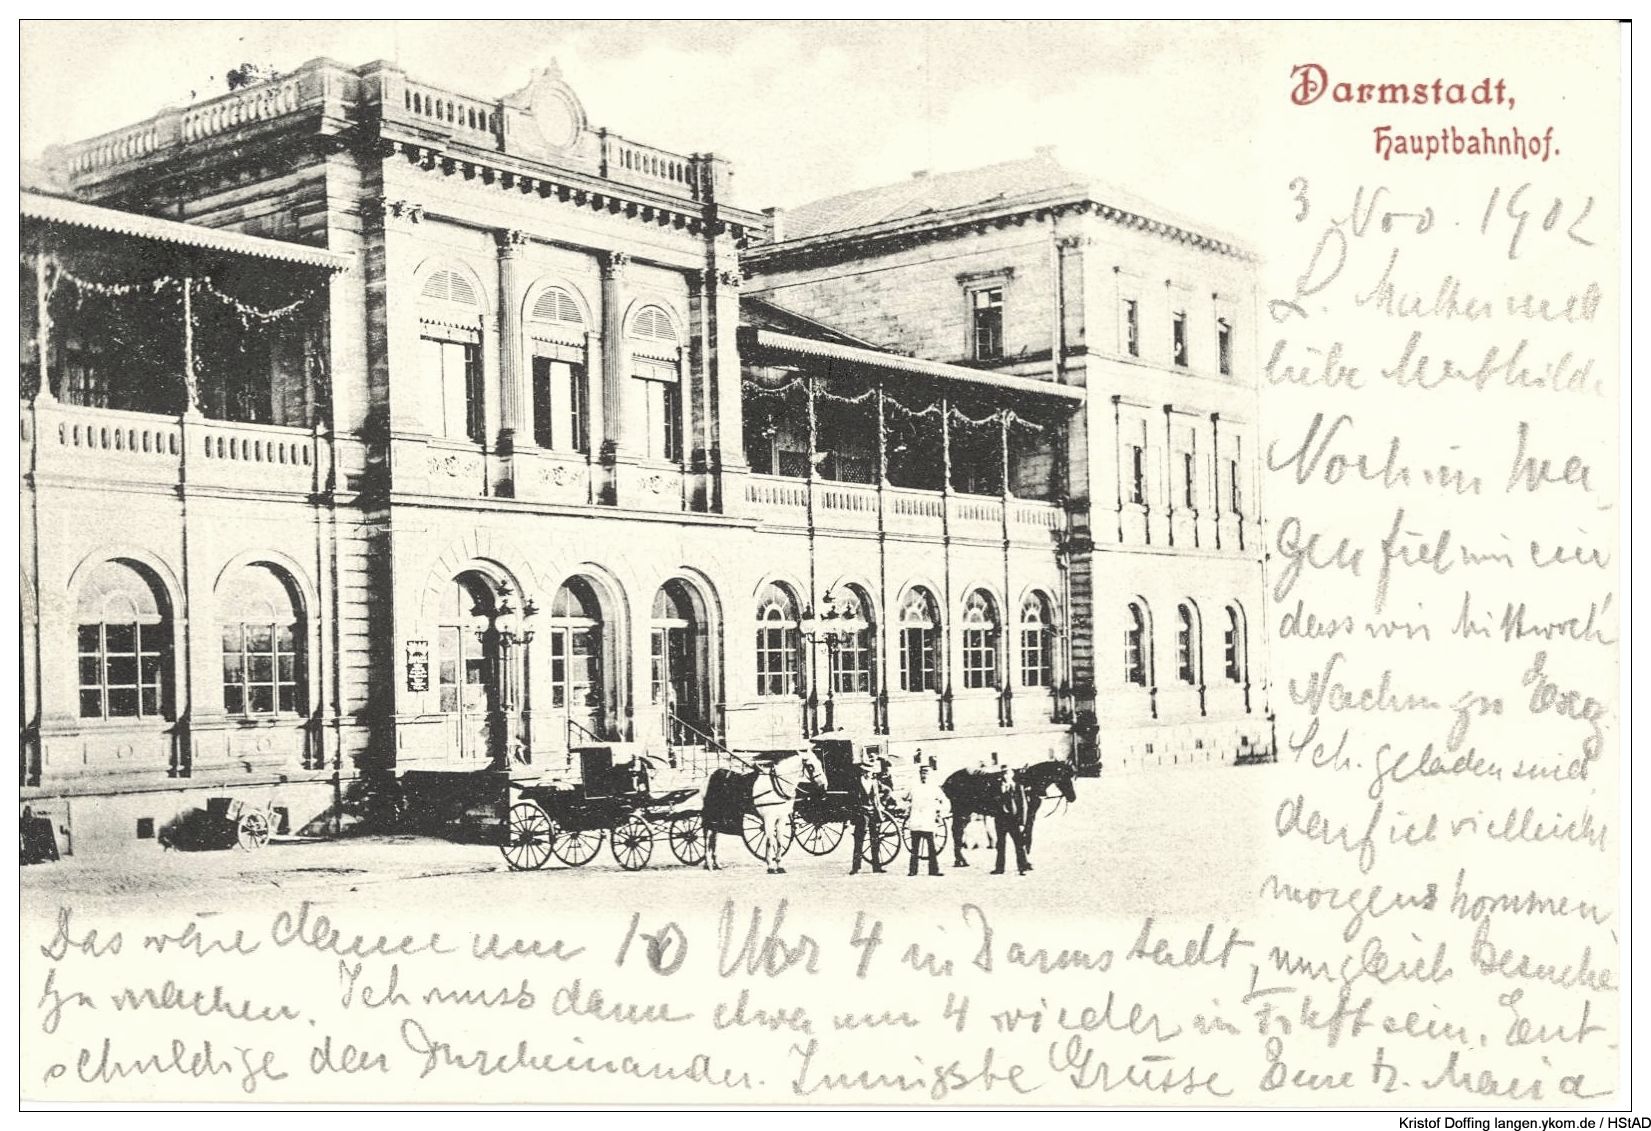 Darmstadt,
Hauptbahnhof.
3 Nov. 1902
L. Mutter und
liebe Mathilde
Noch im Wa-
gen fiel mir ein
dass wir Mittwoch
Nachm zu Exz.
Sch. geladen sind
darf ich vielleicht
morgens kommen
Das wäre dann um 10 Uhr 4 in Darmstadt, um gleich Besuche
zu machen. Ich muss dann etwa um 4 wieder in sein. Ent-
schuldige den Durcheinander. Innigste Grüsse Eure tr. Maria
Kristof Doffing langen.ykom.de / HStAD